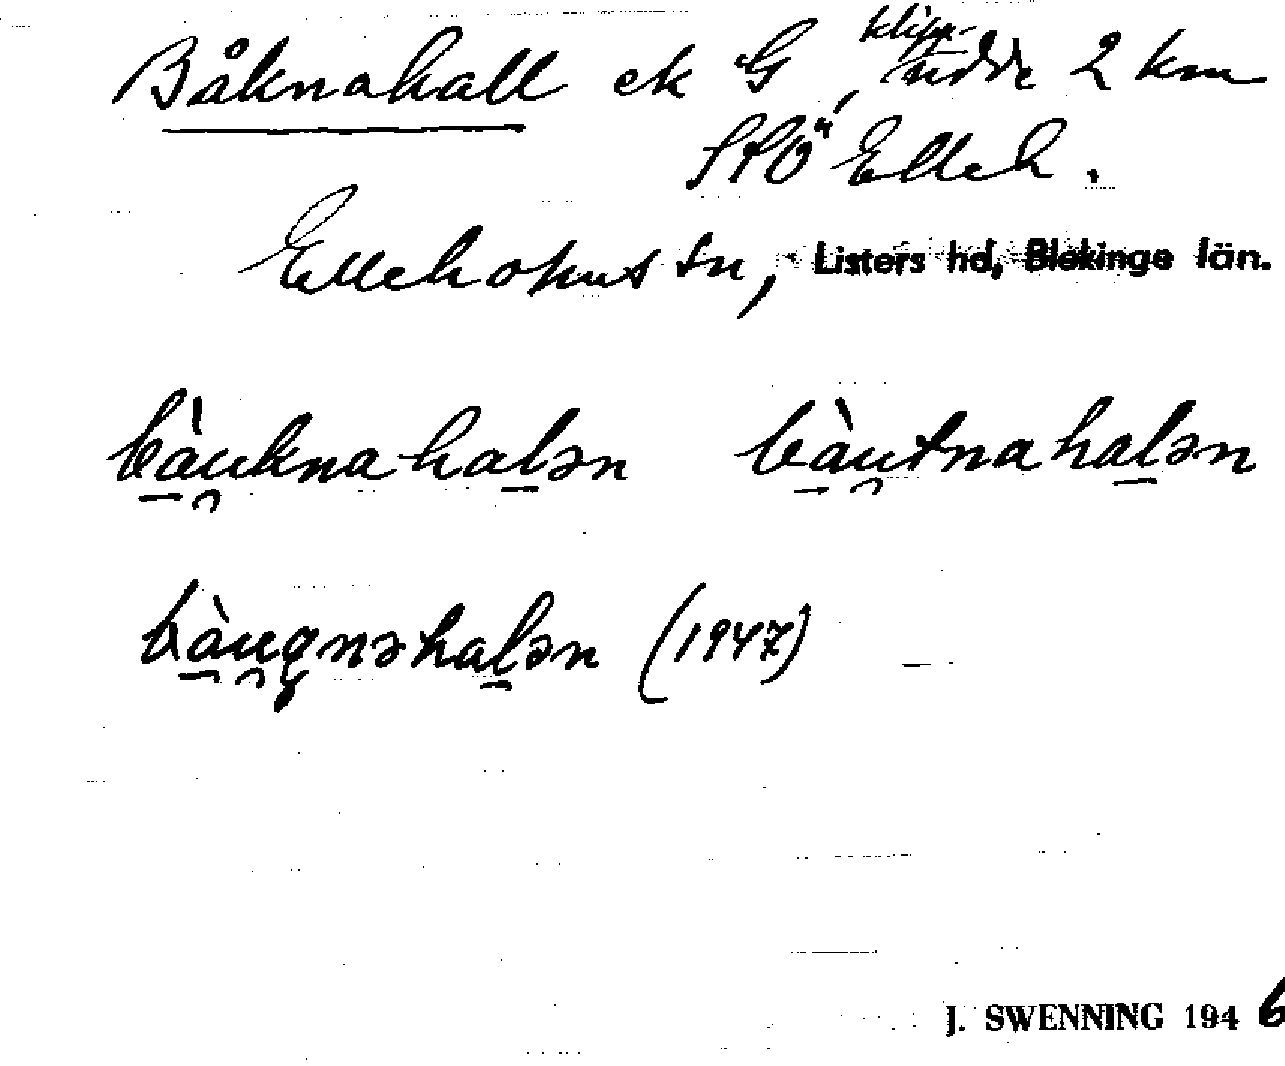 Båknahall ek G, klipp-udde 2 km
SSÖ Elleh.
Elleholms sn, Listers hd, Blekinge län.
bàu̯knahalən bàu̯tnahalən
bàu̯gnəhalən (1947)
J. SWENNING 1946